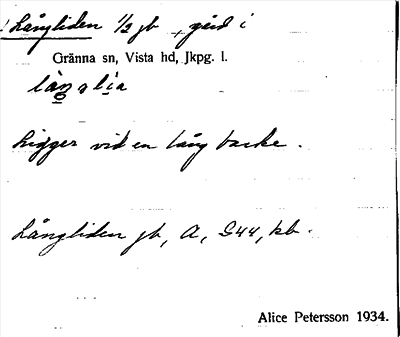 ! Långliden 1/2 jb + gård i
Gränna sn, Vista hd, Jkpg. l.
Ligger vid en lång backe.
Långliden jb, A, G44, kb.
Alice Petersson 1934.